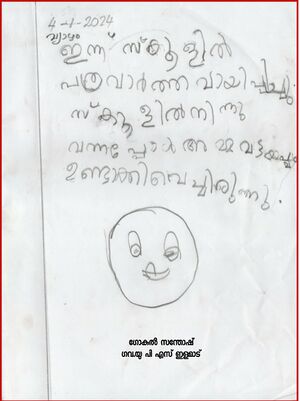 4-1-2024
വ്യാഴം
ഇന്ന് സ്കൂളിൽ
പത്രവാർത്ത വായിപ്പിച്ചു.
സ്കൂളിൽനിന്നു
വന്നപ്പോൾ അമ്മ വട്ടയപ്പം
ഉണ്ടാക്കിവെച്ചിരുന്നു.
ഗോകുൽ സന്തോഷ്
ഗവ.യു പി എസ് ഇളമാട്